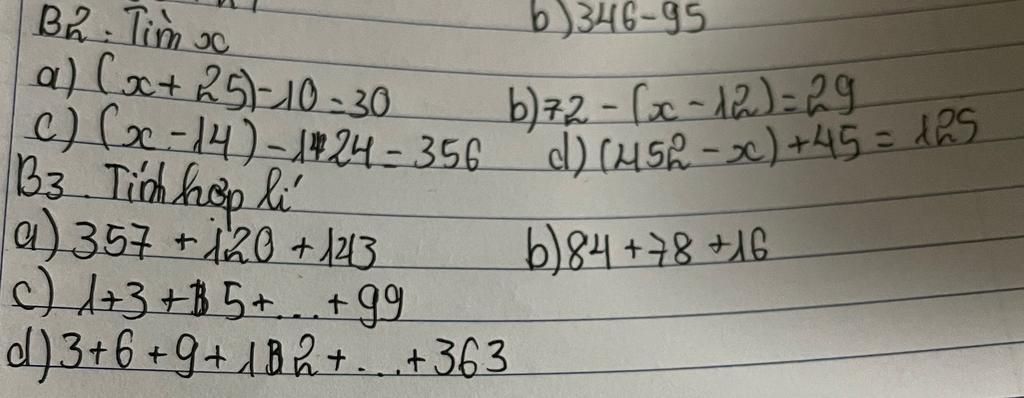 b) 346-95
B2. Tìm x
a) (x + 25) - 10 = 30 b) 72 - (x - 12) = 29
c) (x - 14) - 124 = 356 d) (152 - x) + 45 = 125
B3. Tính hợp lí
a) 357 + 120 + 143 b) 84 + 78 + 16
c) 1 + 3 + 5 + ... + 99
d) 3 + 6 + 9 + 12 + ... + 363